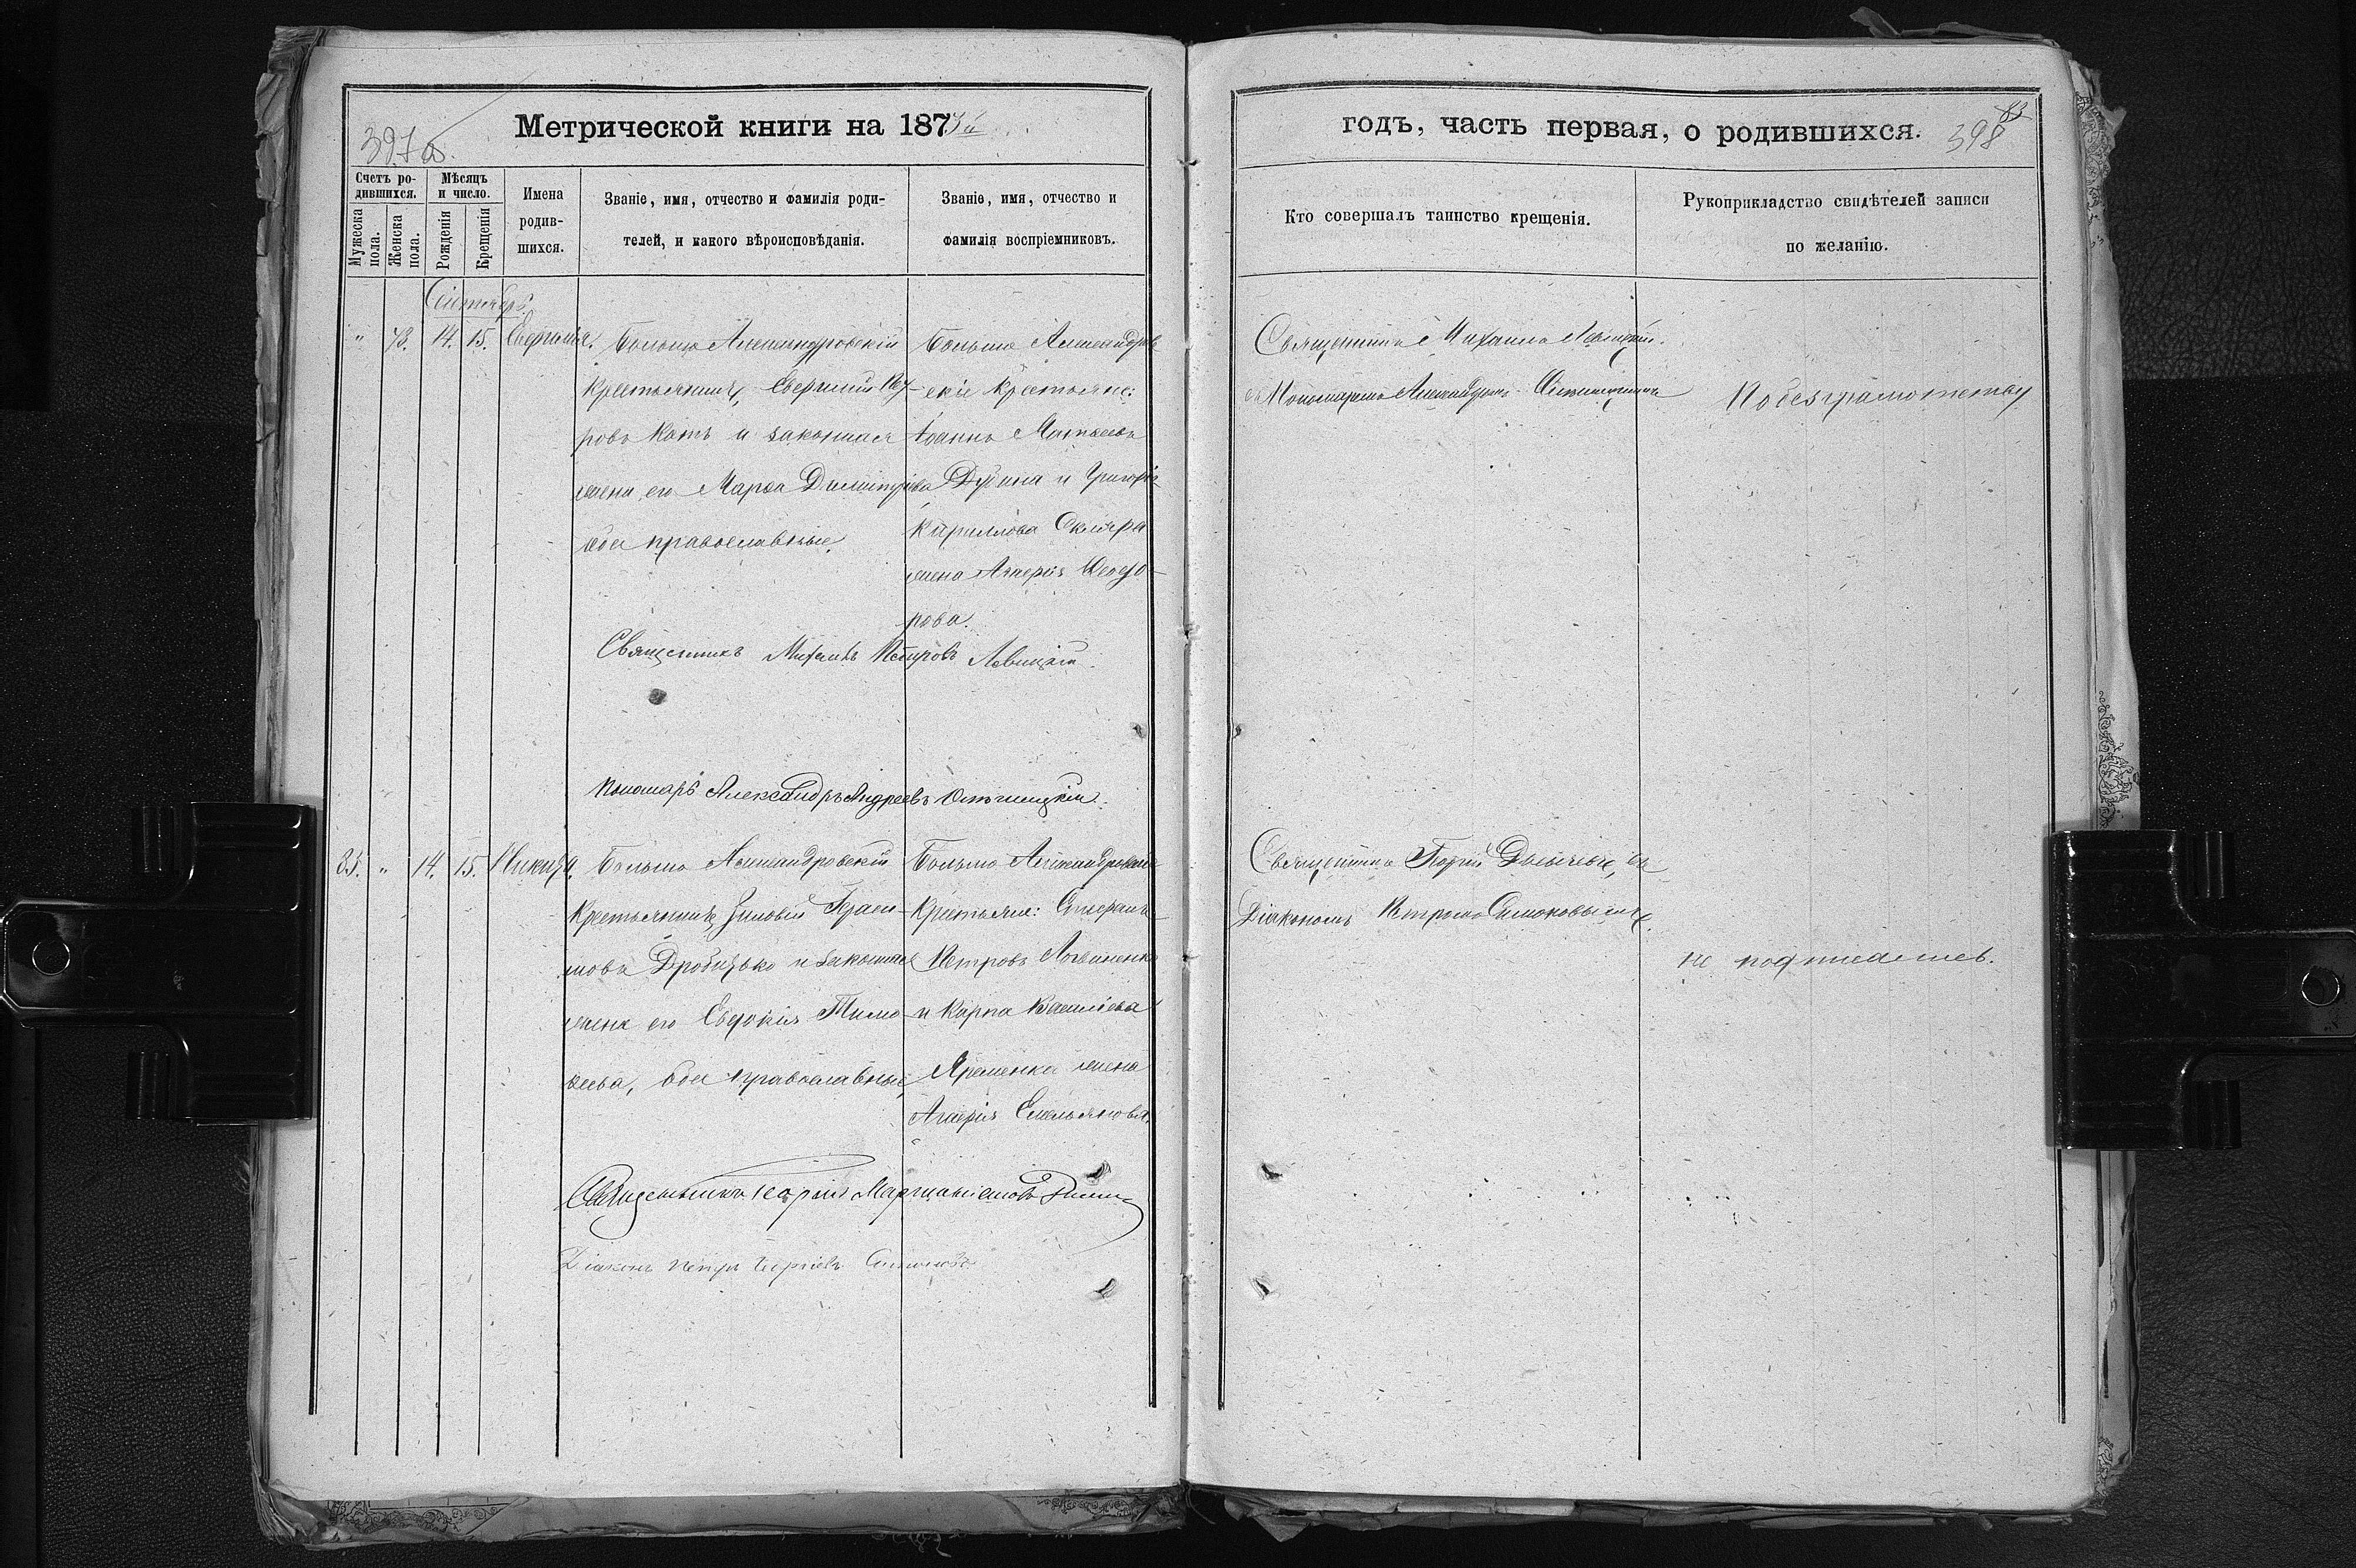 Метрической книги на 187
397 об.
Счетъ родившихся.
Мужеска пола.
Женска пола.
Мѣсяцъ и число.
Рожденія
Крещенія
Имена родившихся.
Званіе, имя, отчество и фамилія родителей, и какого вѣроисповѣданія.
Званіе, имя, отчество и фамилія воспріемниковъ.
Сентябрь.
" 73. 14. 15.
Больше Александровскій
крестьянинъ,
ровъ Котъ и законная
жена его Марѳа Димитріева
обои православные.
Больше Александров
скіе крестьяне:
Іоаннъ Матвеевъ
Дубина и Григорія
Кириллова Скляра
жена Агаѳія Ѳеодо
рова.
Священникъ Михаилъ Петровъ Левицкій.
Пономарь Александръ Андреевъ
35. " 14. 15. Никита.
Больше Александровскій
крестьянинъ, Зиновій Гераси
мовъ Дробицько и законная
жена его Евдокія Тимо
ѳеева, обои православные,
Больше Александровскіе
крестьяне: Стефанъ
Петровъ Логвиненко
и Карпа Василіева
Яременка жена
Агаѳія Емельянова.
Священникъ Георгій
Діаконъ Петръ Георгіевъ Симоновъ
годъ, часть первая, о родившихся.
398
Кто совершалъ таинство крещенія.
Рукоприкладство свидѣтелей записи по желанію.
Священникъ Михаилъ Левицкій.
съ Пономаремъ Александромъ
По безграмотству
Священникъ Георгій съ
Діакономъ Петромъ Симоновымъ.
не подписались.